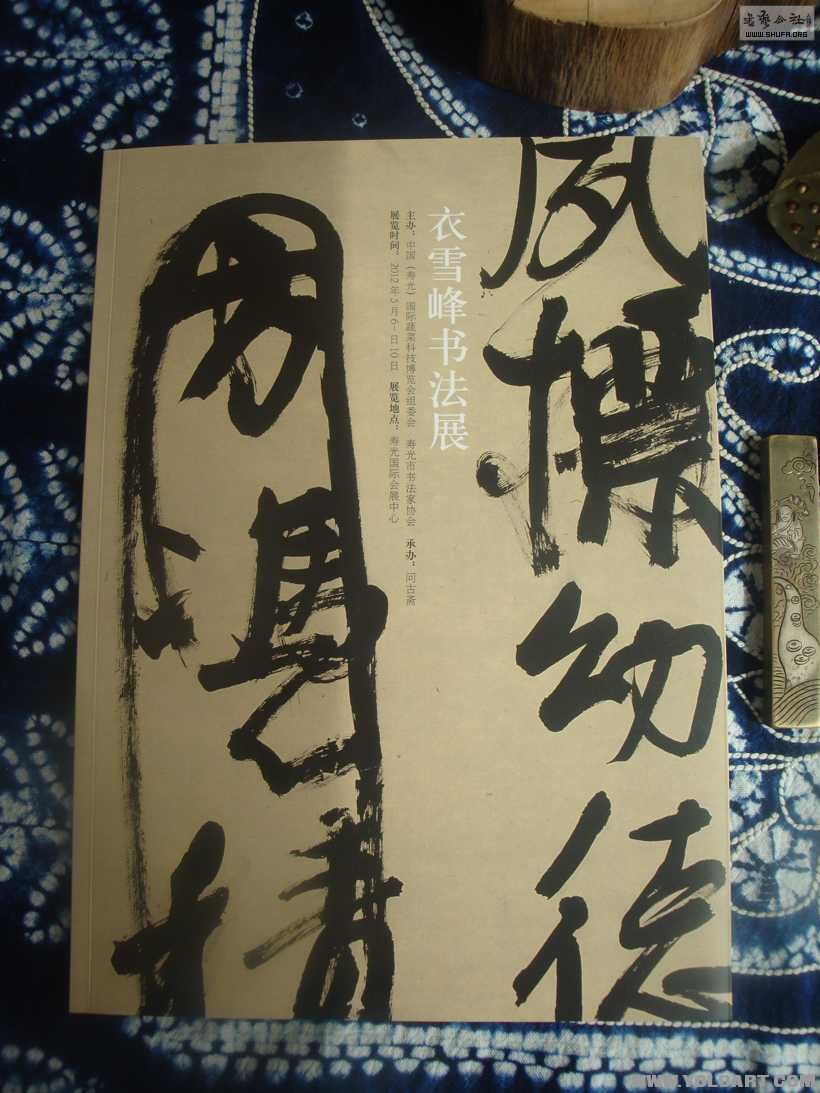 书艺公社
WWW.SHUFA.ORG
衣雪峰书法展
主办：中国（寿光）国际蔬菜科技博览会组委会 寿光市书法家协会 承办：问古斋
展览时间：2012年5月6-日10日 展览地点：寿光国际会展中心
夙标幼德
WWW.YOLOART.COM